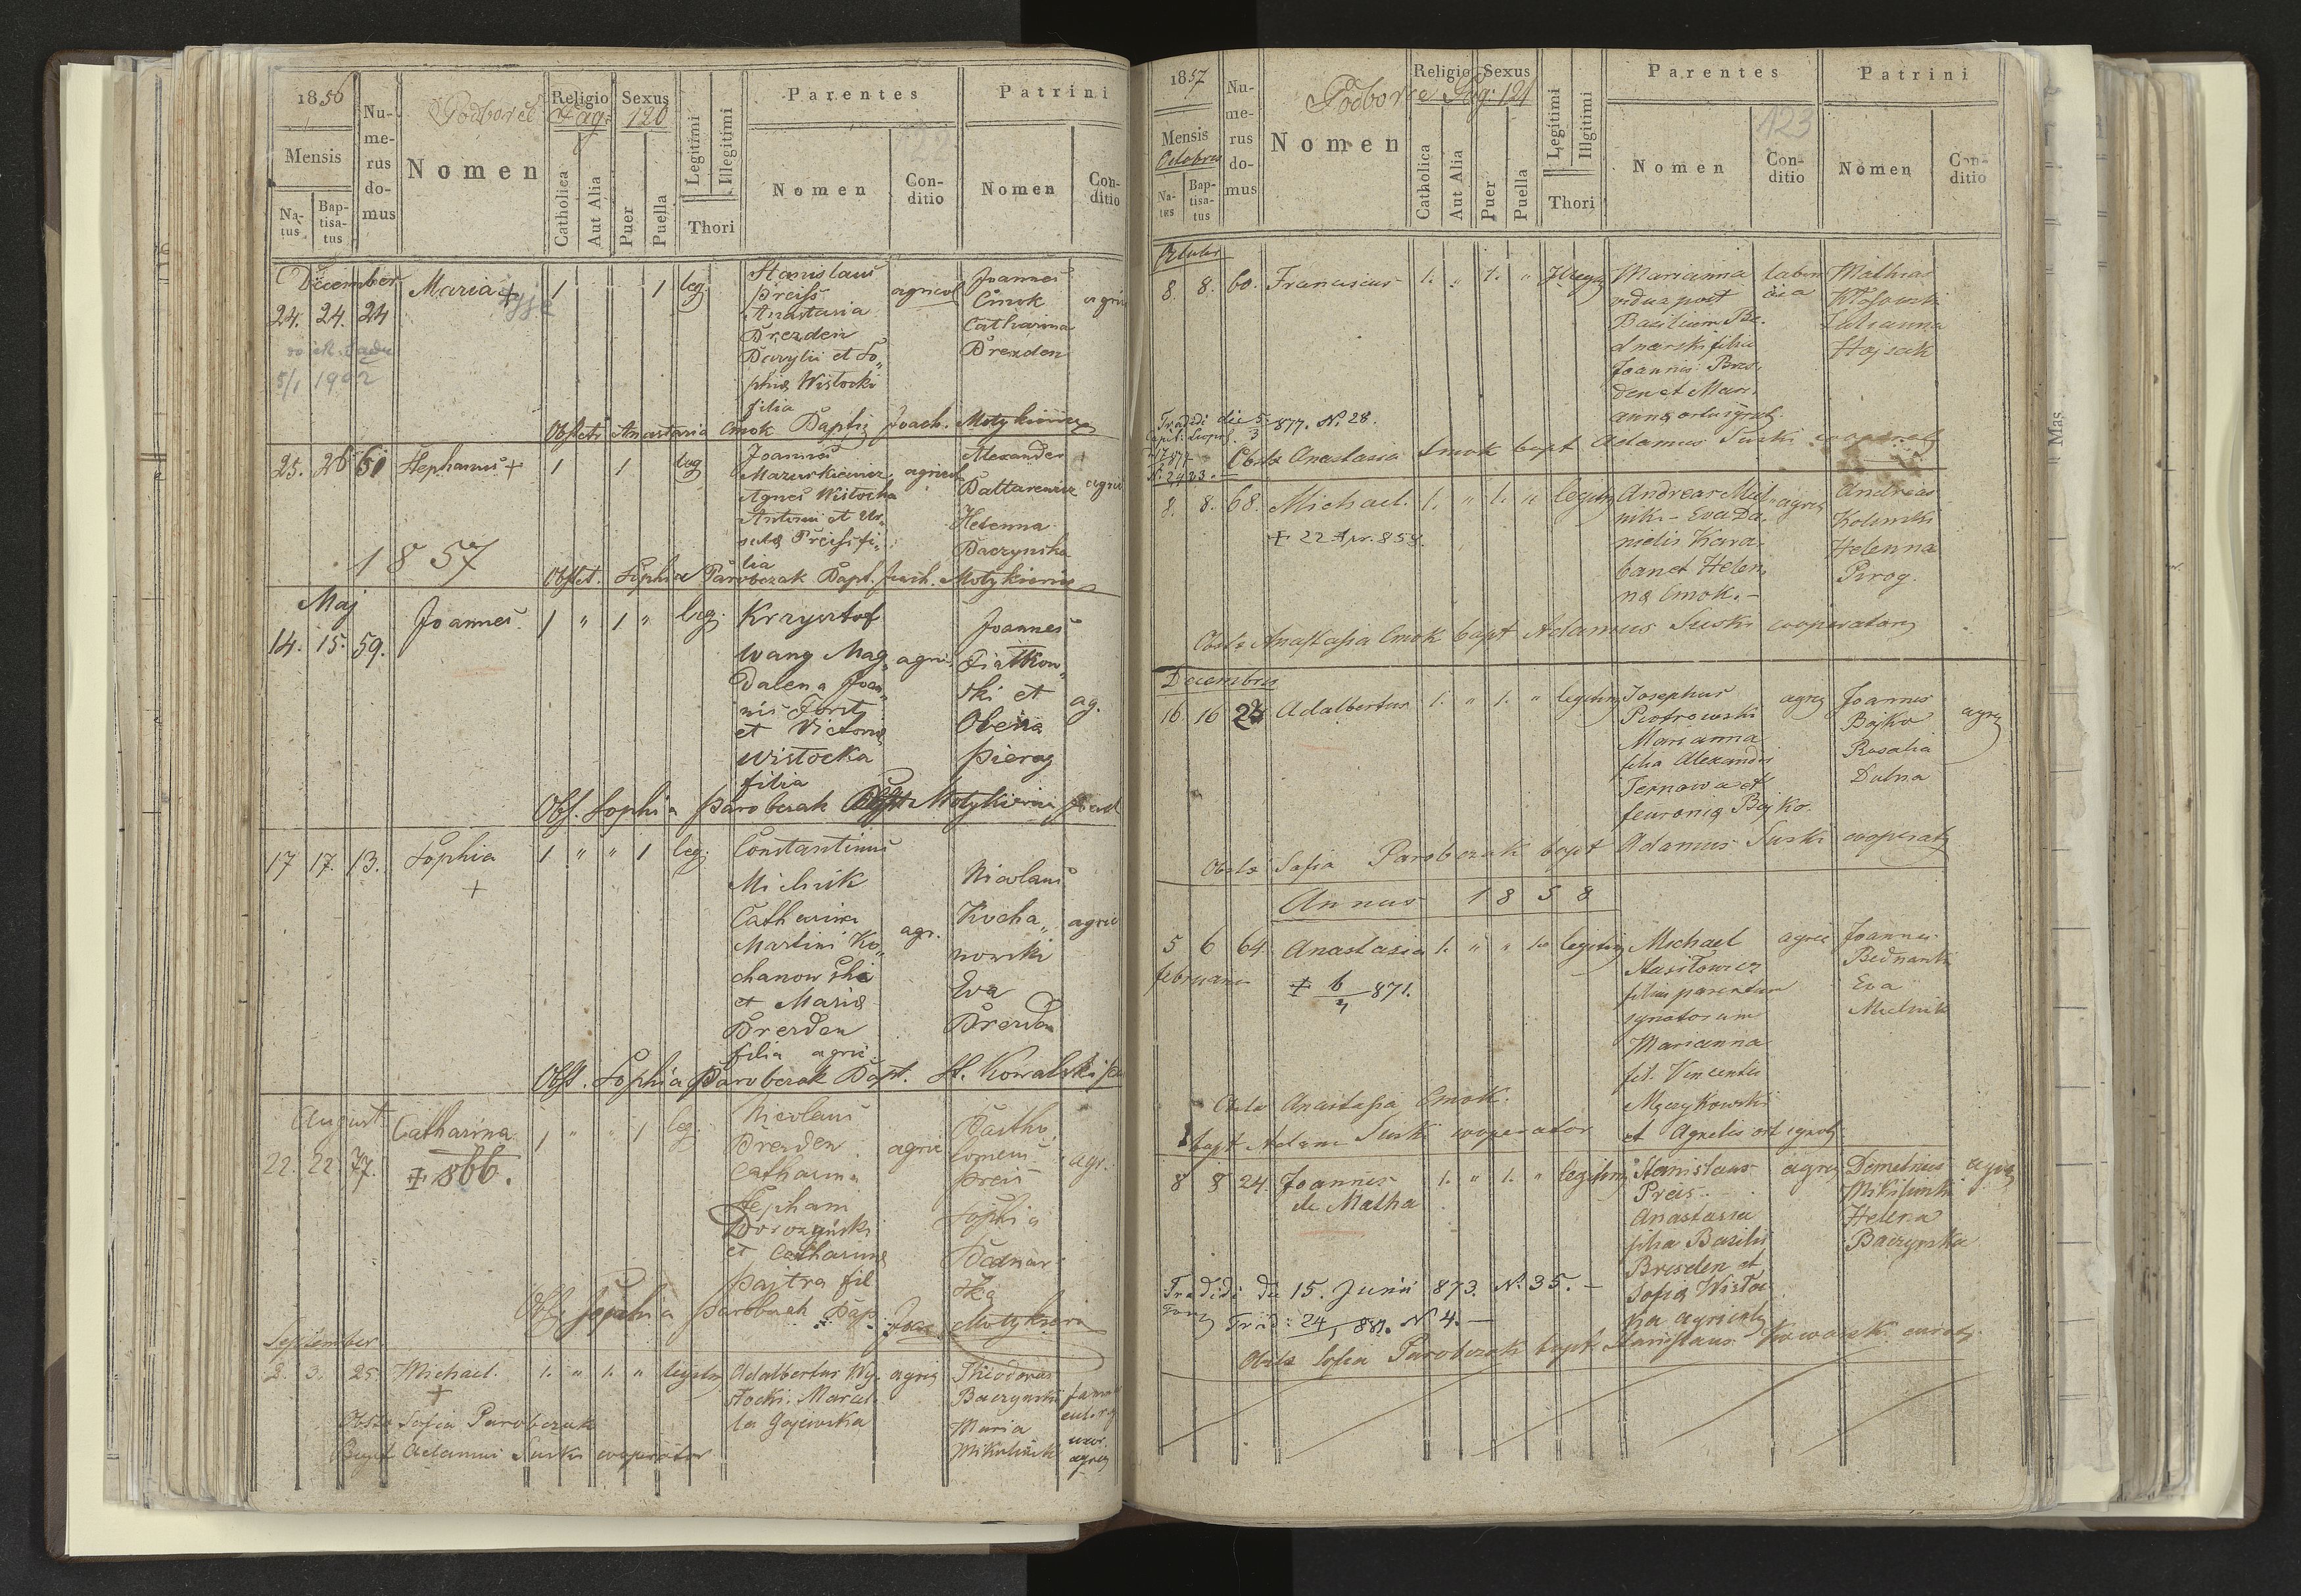 1856
Mensis
Na-
tus
Bap-
tisa-
tus
Nu-
me-
rus
do-
mus
Podborce Pag: 120
Nomen
Religio
Catholica
Aut Alia
Sexus
Puer
Puella
Legitimi
Illegitimi
Thori
Parentes
Nomen
Con-
ditio
Patrini
Nomen
Con-
ditio
December
24. 24. 24 Maria + 1 1 leg
5/1 1902
Stanislaus
Preiss
Anastasia
Drezden
Bazylii et So„
phiæ Wistocki
filia
agricol
Joannes
Cmok
Catharina
Drezden
agric
Obstet. Anastasia Cmok Baptiz Joach. Motykiewicz
25. 26 61 Stephanus + 1 1 leg
Joannes
Mazurkiewicz
Agnes Wistocka
Antonii et Ur„
sulæ Preiss fi„
lia
agricol
Alexander
Battarewicz
Helenna
Baczynska
agric
Obstet. Sophia Parobczak Bapt. Joach. Motykiewicz
1857
Maj
14. 15. 59. Joannes 1 " 1 " leg.
Krzysztof
Wang Mag„
dalena Joan„
nis Forst
et Victoria
Wistocka
filia
agric
Joannes
Fiatkow„
ski et
Olena
Pierog
ag.
Obs. Sophia Parobczak Bapt Motykiewicz
17 17. 13. Sophia 1 " " 1 leg.
+
Constantinus
Mielnik
Catharina
Martini Ko„
chanowski
et Mariæ
Drezden
filia agric.
agr.
Nicolaus
Kocha„
nowski
Eva
Drezden
agric
Obst. Sophia Parobczak Bapt. St. Kowalski
August
22. 22 77. Catharina 1 " " 1 leg.
+ 866.
Nicolaus
Drezden
Catharina
Stephani
Dorozynski
et Catharinæ
Pajtra fil
agric
Bartho
lomeus
Preis
Sophia
Bednar
ska
agr.
Obst. Sophia Parobczak Bap. Joac. Motykiewi
September
2. 3. 25. Michael. 1. " 1. " legitim
+
Adalbertus Wy„
stocki. Marcel„
la Gajewska
agric
Theodorus
Baczynski
Maria
Mikulinik
uxor
agric
Obste Sofia Parobczak
Bapt Adamus Suski cooperator
1857
Mensis
Octobris
Na-
tus
Bap-
tisa-
tus
Nu-
me-
rus
do-
mus
Podborce Pag: 121
Nomen
Religio
Catholica
Aut Alia
Sexus
Puer
Puella
Legitimi
Illgitimi
Thori
Parentes
123
Nomen
Con-
ditio
Patrini
Nomen
Con-
ditio
October
8. 8. 60. Franciscus 1. " 1. " Illegit
Marianna
vidua post
Basilium Be„
dnarski filia
Joannis Bres„
den et Mari„
annæ ortus ignot.
Mathias
Julianna
Hajsak
Tradidi die 5/3 877. N. 28.
Obste Anastasia Smok bapt Adamus Suski cooperat
8. 8. 68. Michael. 1. " 1. " legitim
+ 22 Apr. 858.
Andreas Miel„
nik - Eva Da„
nielis Kara„
ban et Helen„
næ Cmok. -
agric
Andreas
Kolinski
Helenna
Pirog.
Obste Anastasia Cmok bapt Adamus Suski cooperator
Decembris
16 16 23 Adalbertus 1. " 1. " legitim
Josephus
Piotrowski
Marianna
filia Alexandri
Ternowa et
feuroniæ Bojko.
agric
Joannes
Bojko
Rosalia
Dubna
agric
Obste Sofia Parobczak bapt Adamus Suski cooperat
Annus 1858
5 6 64. Anastasia 1. " " 1. legitim
februarii
+ 6/7 871.
Michael
Stasitowicz
filius parentum
ignotorum
Marianna
fil. Vincentii
Męczykowski
et Agnetis ort ignot.
agric
Joannes
Bednarski
Eva
Mielnik
Obste Anastasia Cmok.
bapt Adam Suski cooperator
8 8 24. Joannes 1. " 1. " legitim
de Matha
Stanislaus
Preis.
Anastasia
filia Basilii
Bresden et
Sofiæ Wistoc
ka agricol
agric
Demetrius
Mikitinski
Helena
Baczynska
agric
Tradidi die 15. Junii 873. N. 35. -
Trad: 24/1 881. N 4. -
Obste Sofia Parobczak bapt Stanislaus Kowalski
Mas